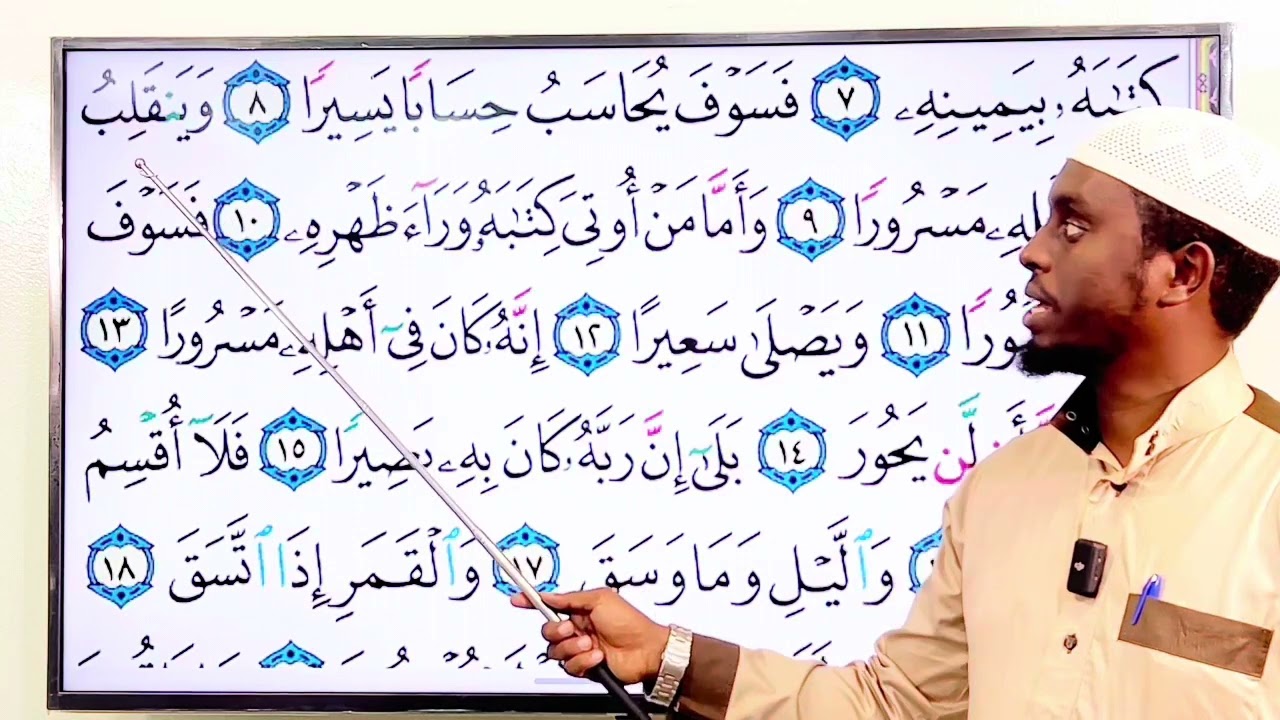 كِتَٰبَهُۥ بِيَمِينِهِۦ ٧ فَسَوْفَ يُحَاسَبُ حِسَابًا يَسِيرًا ٨ وَيَنقَلِبُ
مَسْرُورًا ٩ وَأَمَّا مَنْ أُوتِىَ كِتَٰبَهُۥ وَرَآءَ ظَهْرِهِۦ ١٠ فَسَوْفَ
١١ وَيَصْلَىٰ سَعِيرًا ١٢ إِنَّهُۥ كَانَ فِىٓ أَهْلِهِۦ مَسْرُورًا ١٣
أَن لَّن يَحُورَ ١٤ بَلَىٰٓ إِنَّ رَبَّهُۥ كَانَ بِهِۦ بَصِيرًا ١٥ فَلَآ أُقْسِمُ
وَٱلَّيْلِ وَمَا وَسَقَ ١٧ وَٱلْقَمَرِ إِذَا ٱتَّسَقَ ١٨